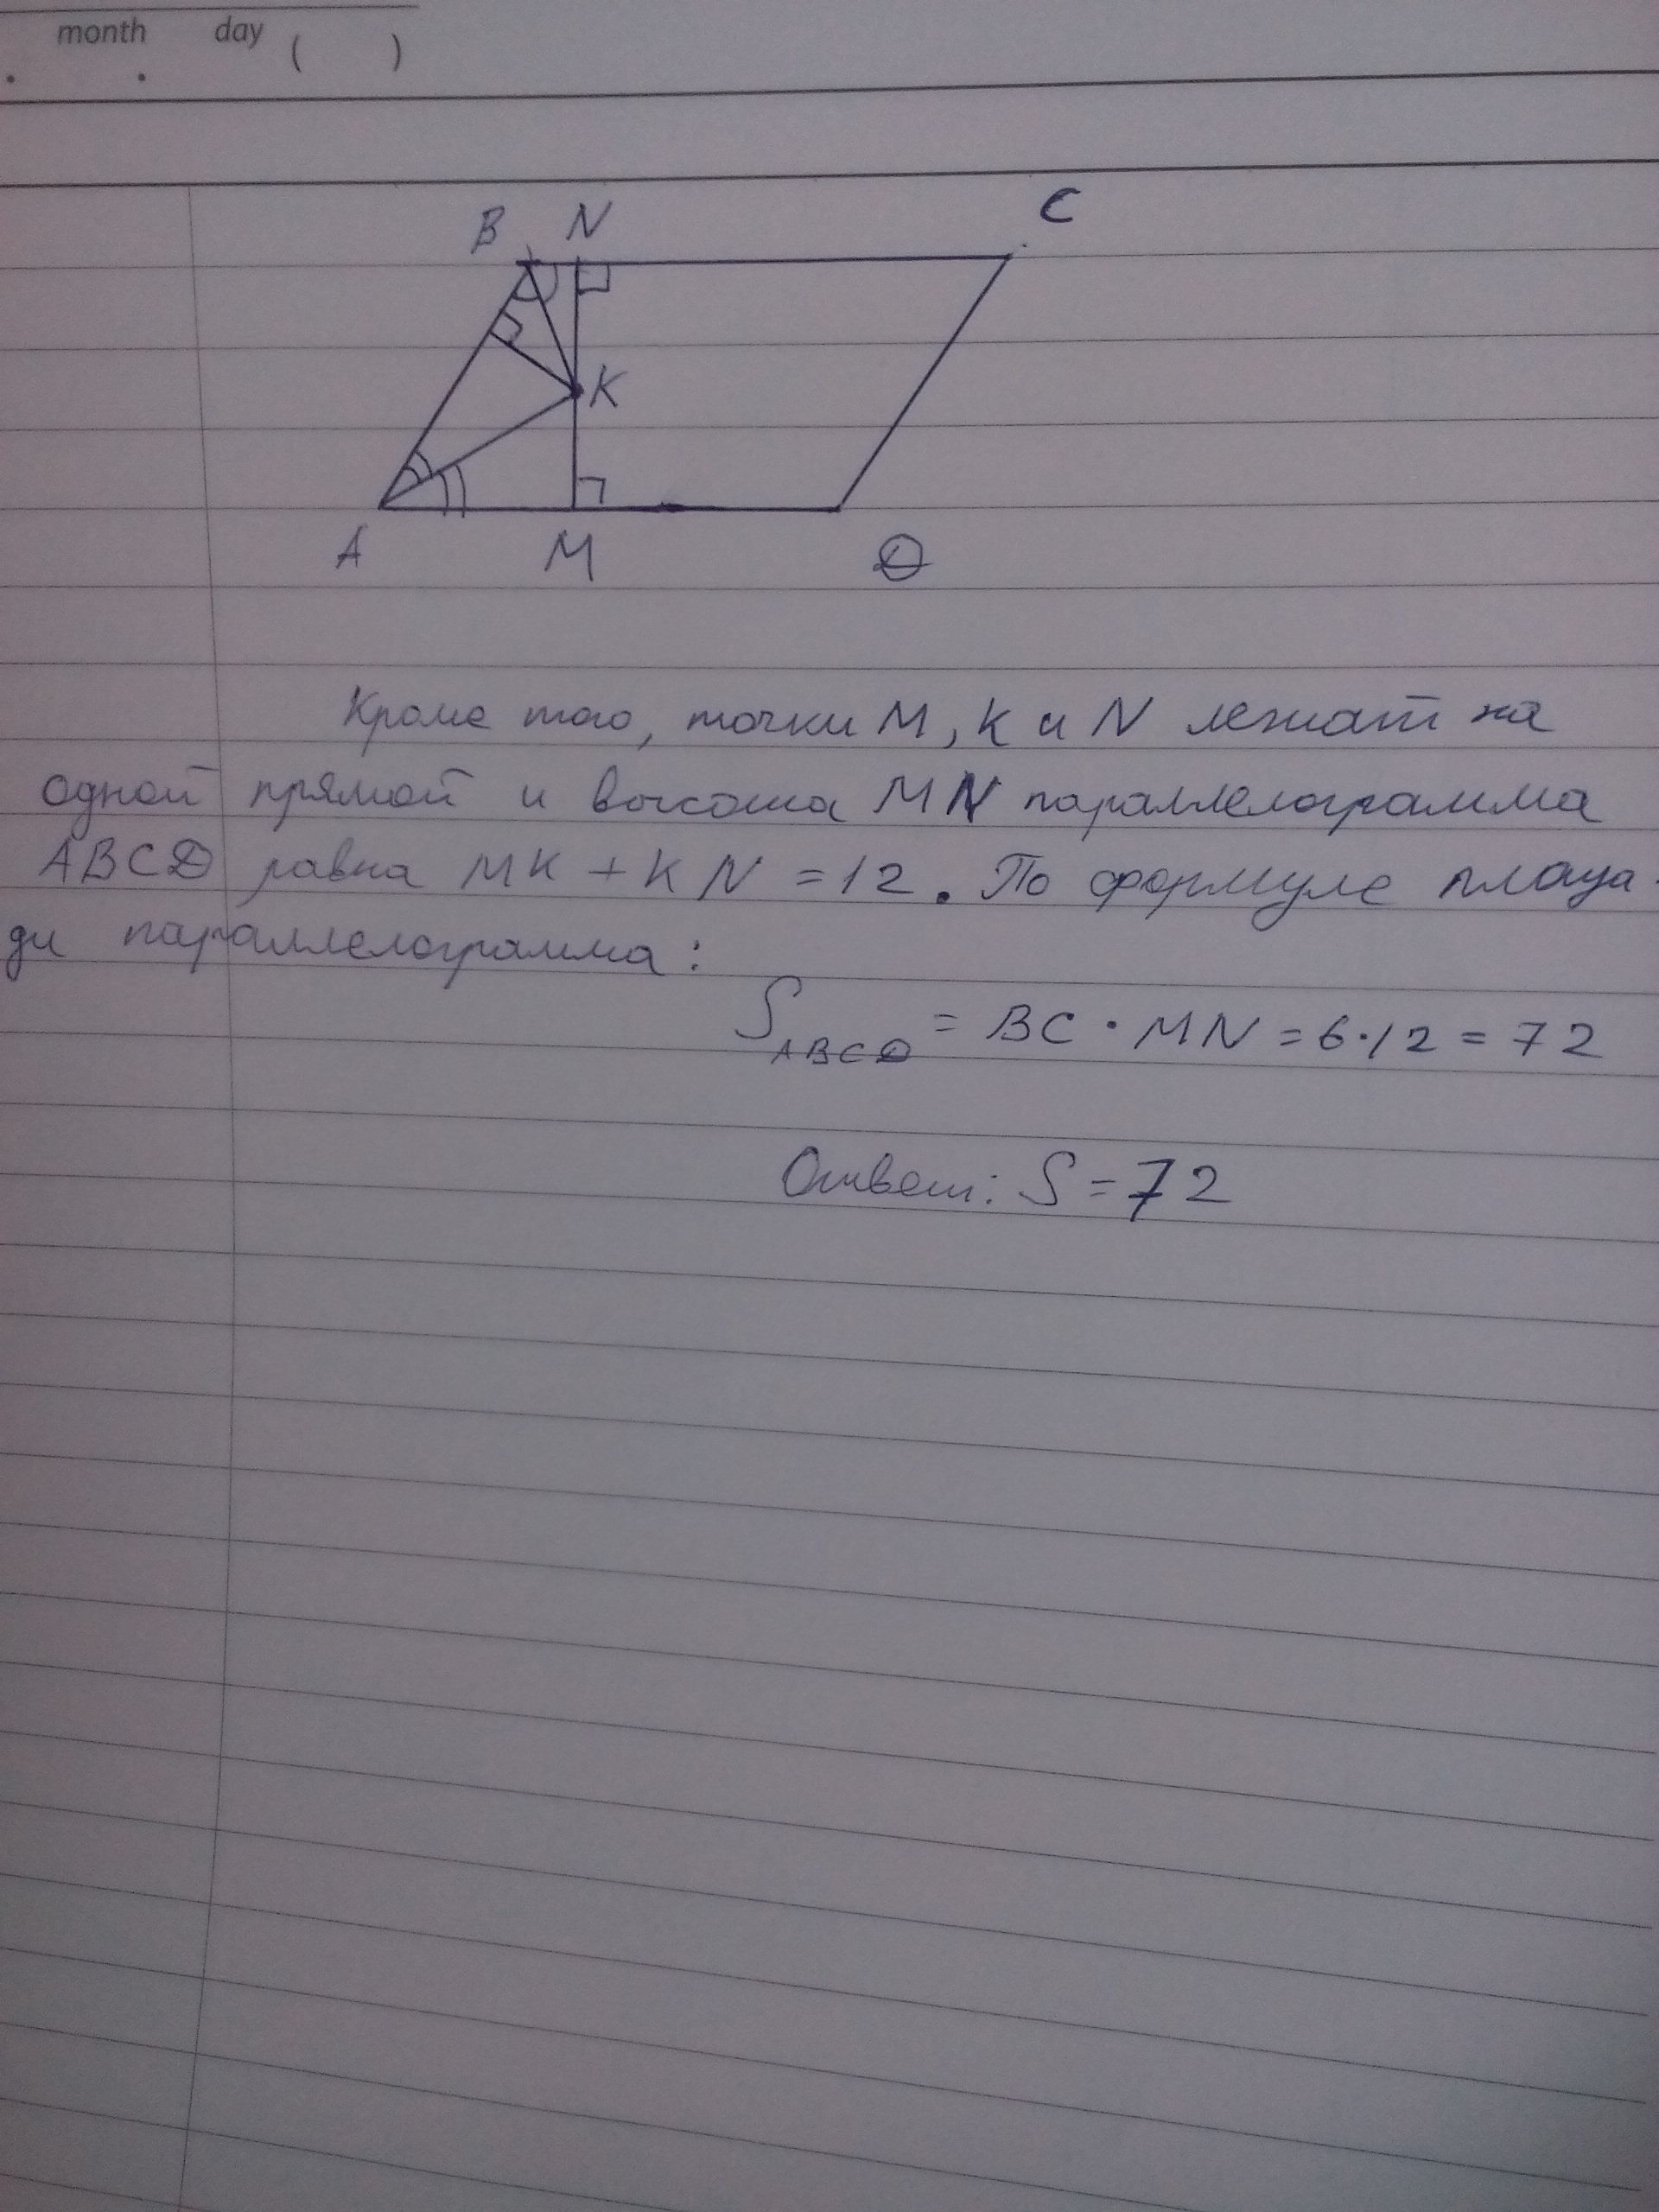 month day ( )
B N C
K
A M D
Кроме того, точки M, K и N лежат на
одной прямой и высота MN параллелограмма
ABCD равна MK + KN = 12. По формуле площа-
ди параллелограмма:
S ABCD = BC · MN = 6·12 = 72
Ответ: S = 72